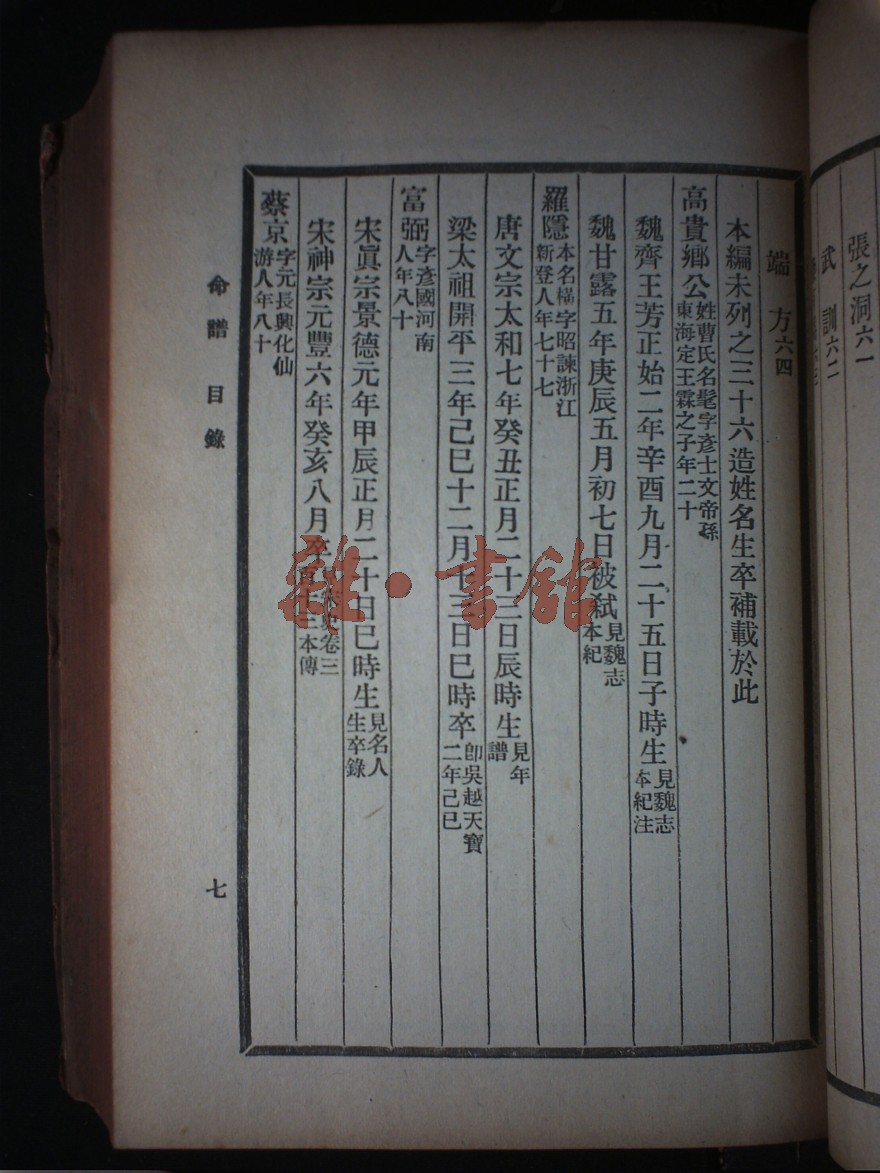 張之洞六一
武訓六二
端方六四
本編未列之三十六造姓名生卒補載於此
高貴鄉公姓曹氏名髦字彥士文帝孫東海定王霖之子年二十
魏齊王芳正始二年辛酉九月二十五日子時生見魏志本紀注
魏甘露五年庚辰五月初七日被弒見魏志本紀
羅隱本名橫字昭諫浙江新登人年七十七
唐文宗太和七年癸丑正月二十三日辰時生見年譜
梁太祖開平三年己巳十二月十三日巳時卒卽吳越天寶二年己巳
富弼字彥國河南人年八十
宋眞宗景德元年甲辰正月二十日巳時生見名人生卒錄
宋神宗元豐六年癸亥八月卒見宋史卷三百十三本傳
蔡京字元長興化仙游人年八十
命譜 目錄
七
雜·書館